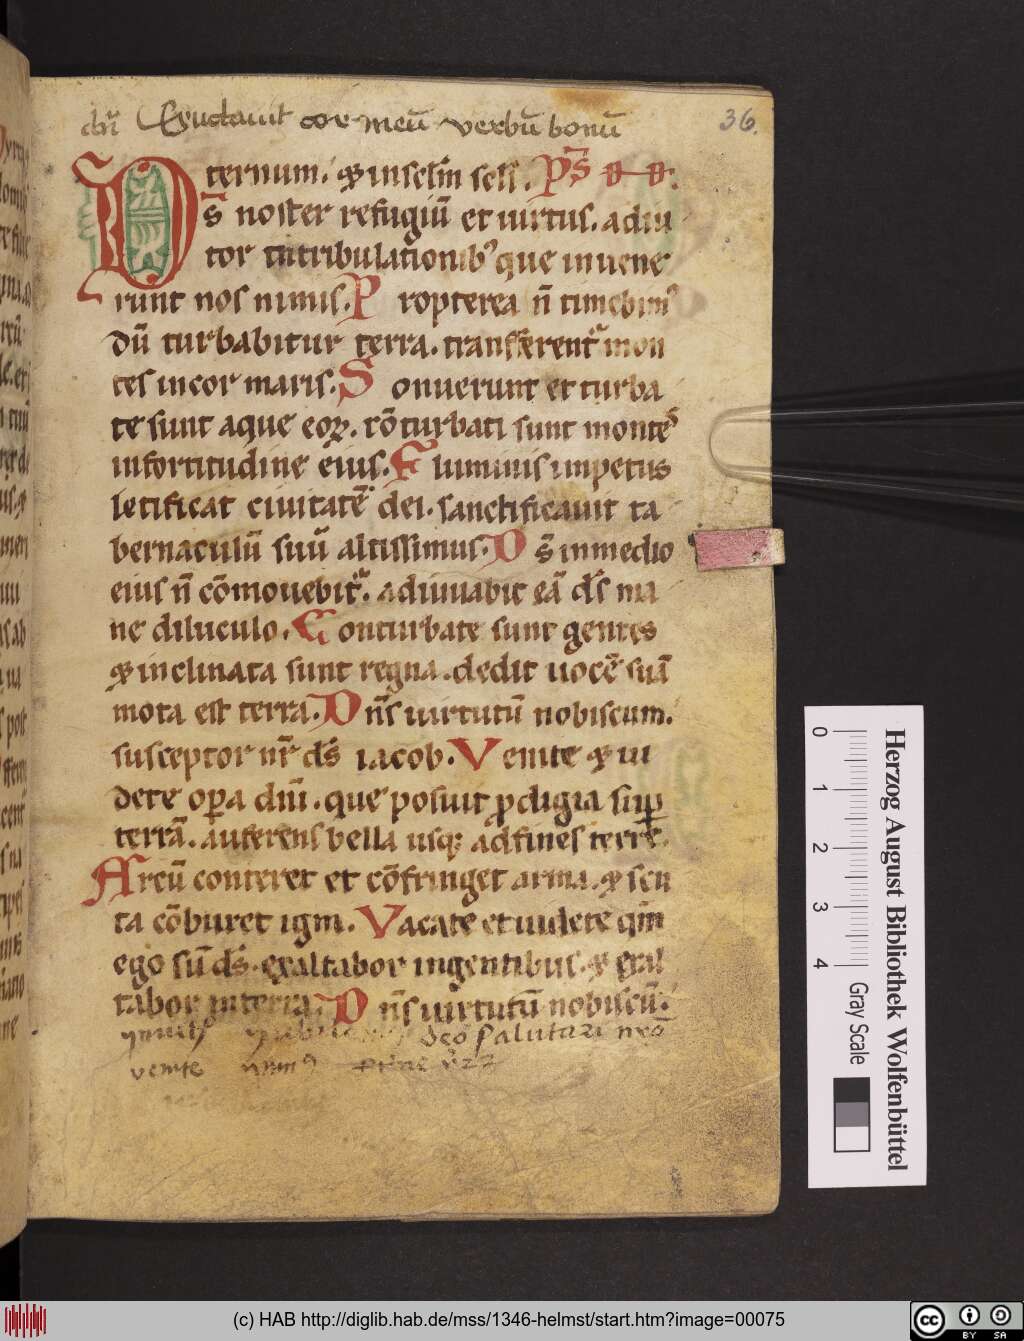 Eructauit cor meū verbū bonū
36.
ternum. ⁊ in sclm scli. Ps dd.
Ds noster refugiū et uirtus. adiu
tor in tribulationib; que inuene
runt nos nimis. Propterea n̄ timebim᷒
dū turbabitur terra. transferent᷑ mon
tes in cor maris. Sonuerunt et turba
te sunt aque eoꝝ. cōturbati sunt montes
in fortitudine eius. Fluminis impetus
letificat ciuitatē dei. sanctificauit ta
bernaculū suū altissimus. Ds in medio
eius n̄ cōmouebit᷑. adiuuabit eā ds ma
ne diluculo. Conturbate sunt gentes
⁊ inclinata sunt regna. dedit uocē suā
mota est terra. Dn̄s uirtutū nobiscum.
susceptor nr̄ ds iacob. Venite ⁊ ui
dete oꝑa dn̄i. que posuit ꝓdigia suꝑ
terrā. auferens bella usq; ad fines terre.
Arcū conteret et cōfringet arma. ⁊ scu
ta cōburet igni. Vacate et uidete qm̄
ego sū ds. exaltabor in gentibus. ⁊ exal
tabor in terra. Dn̄s uirtutū nobiscū.
deo salutari nr̄o
venite
Herzog August Bibliothek Wolfenbüttel
0 1 2 3 4 Gray Scale
(c) HAB http://diglib.hab.de/mss/1346-helmst/start.htm?image=00075
cc BY SA